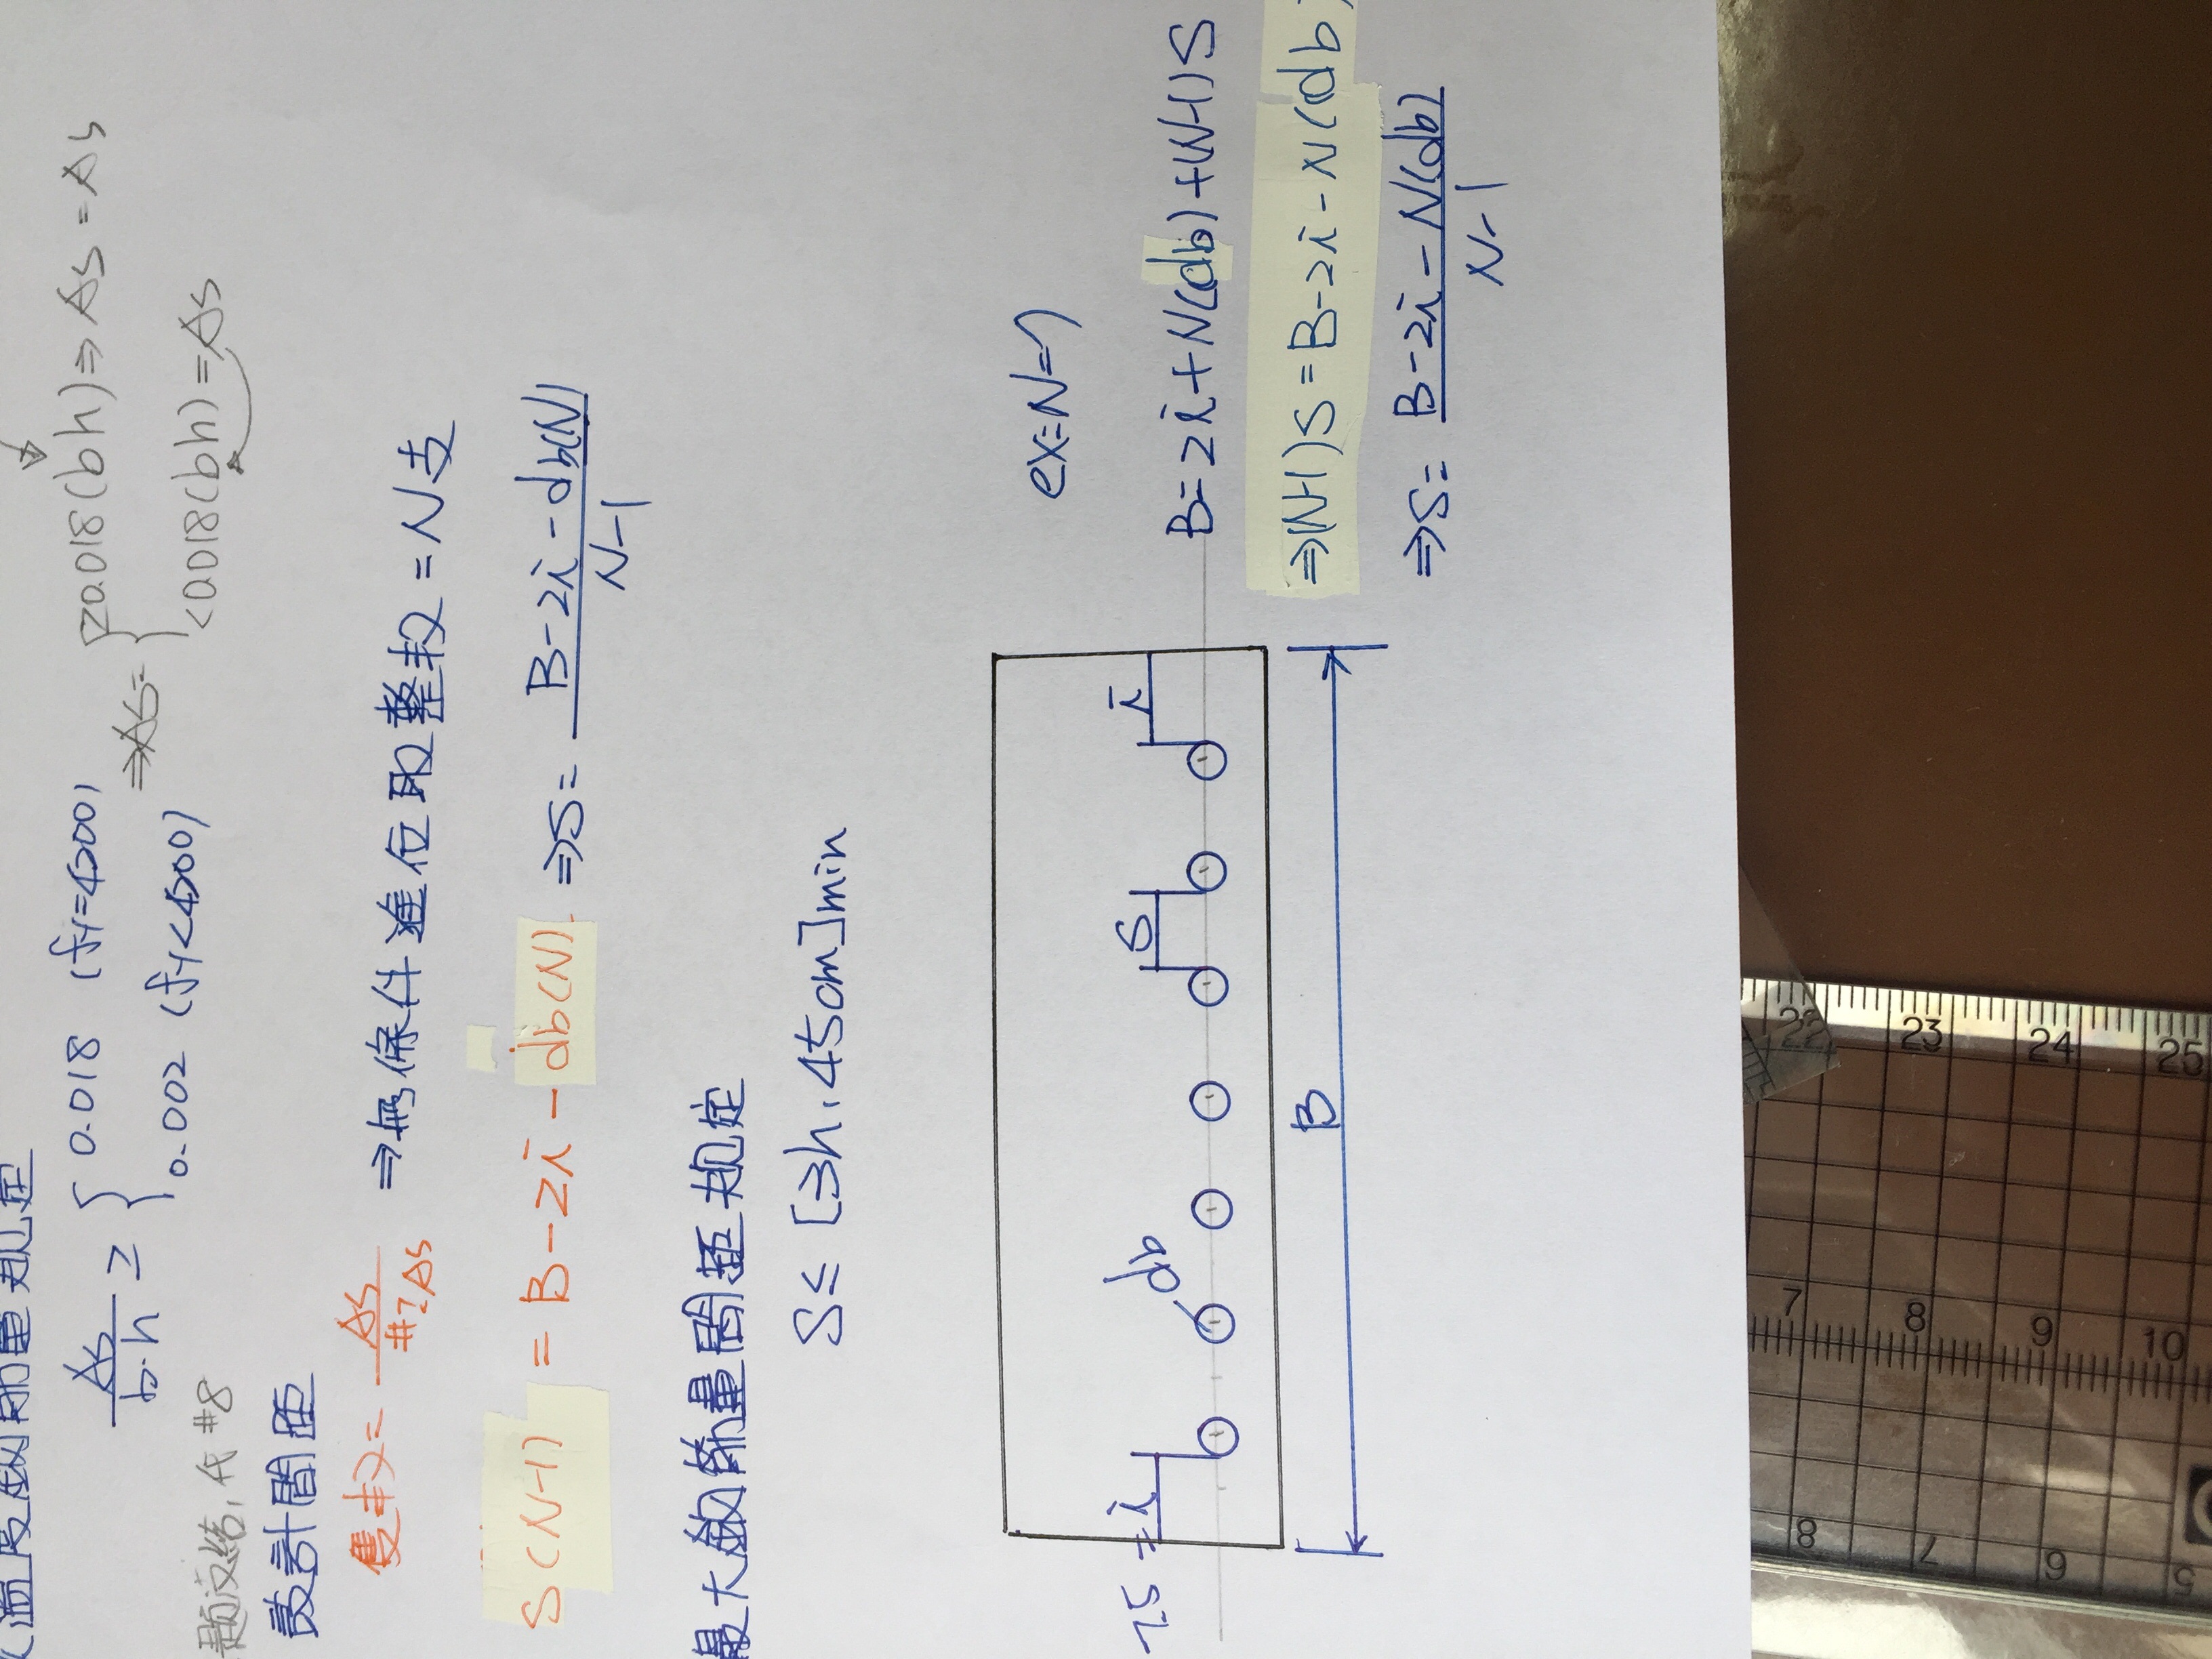 溫度鋼筋量規定
As/b·h ≥ { 0.018 (fy=4200)
0.002 (fy<4200)
⇒As= { ≥0.018(bh)⇒As=As
<0.018(bh)=As
題沒給,代#8
設計間距
隻数= As/#?As ⇒無條件進位取整数=N支
S(N-1) = B-2i-db(N) ⇒S= B-2i-db(N)/N-1
最大鋼筋量間距規定
S≤[3h,45cm]min
ex=N=7
7.5=i
db
S
i
B
B=2i+N(db)+(N-1)S
⇒(N-1)S=B-2i-N(db)
⇒S= B-2i-N(db)/N-1
22 23 24 25
7 8 9 10
8 7 6 5